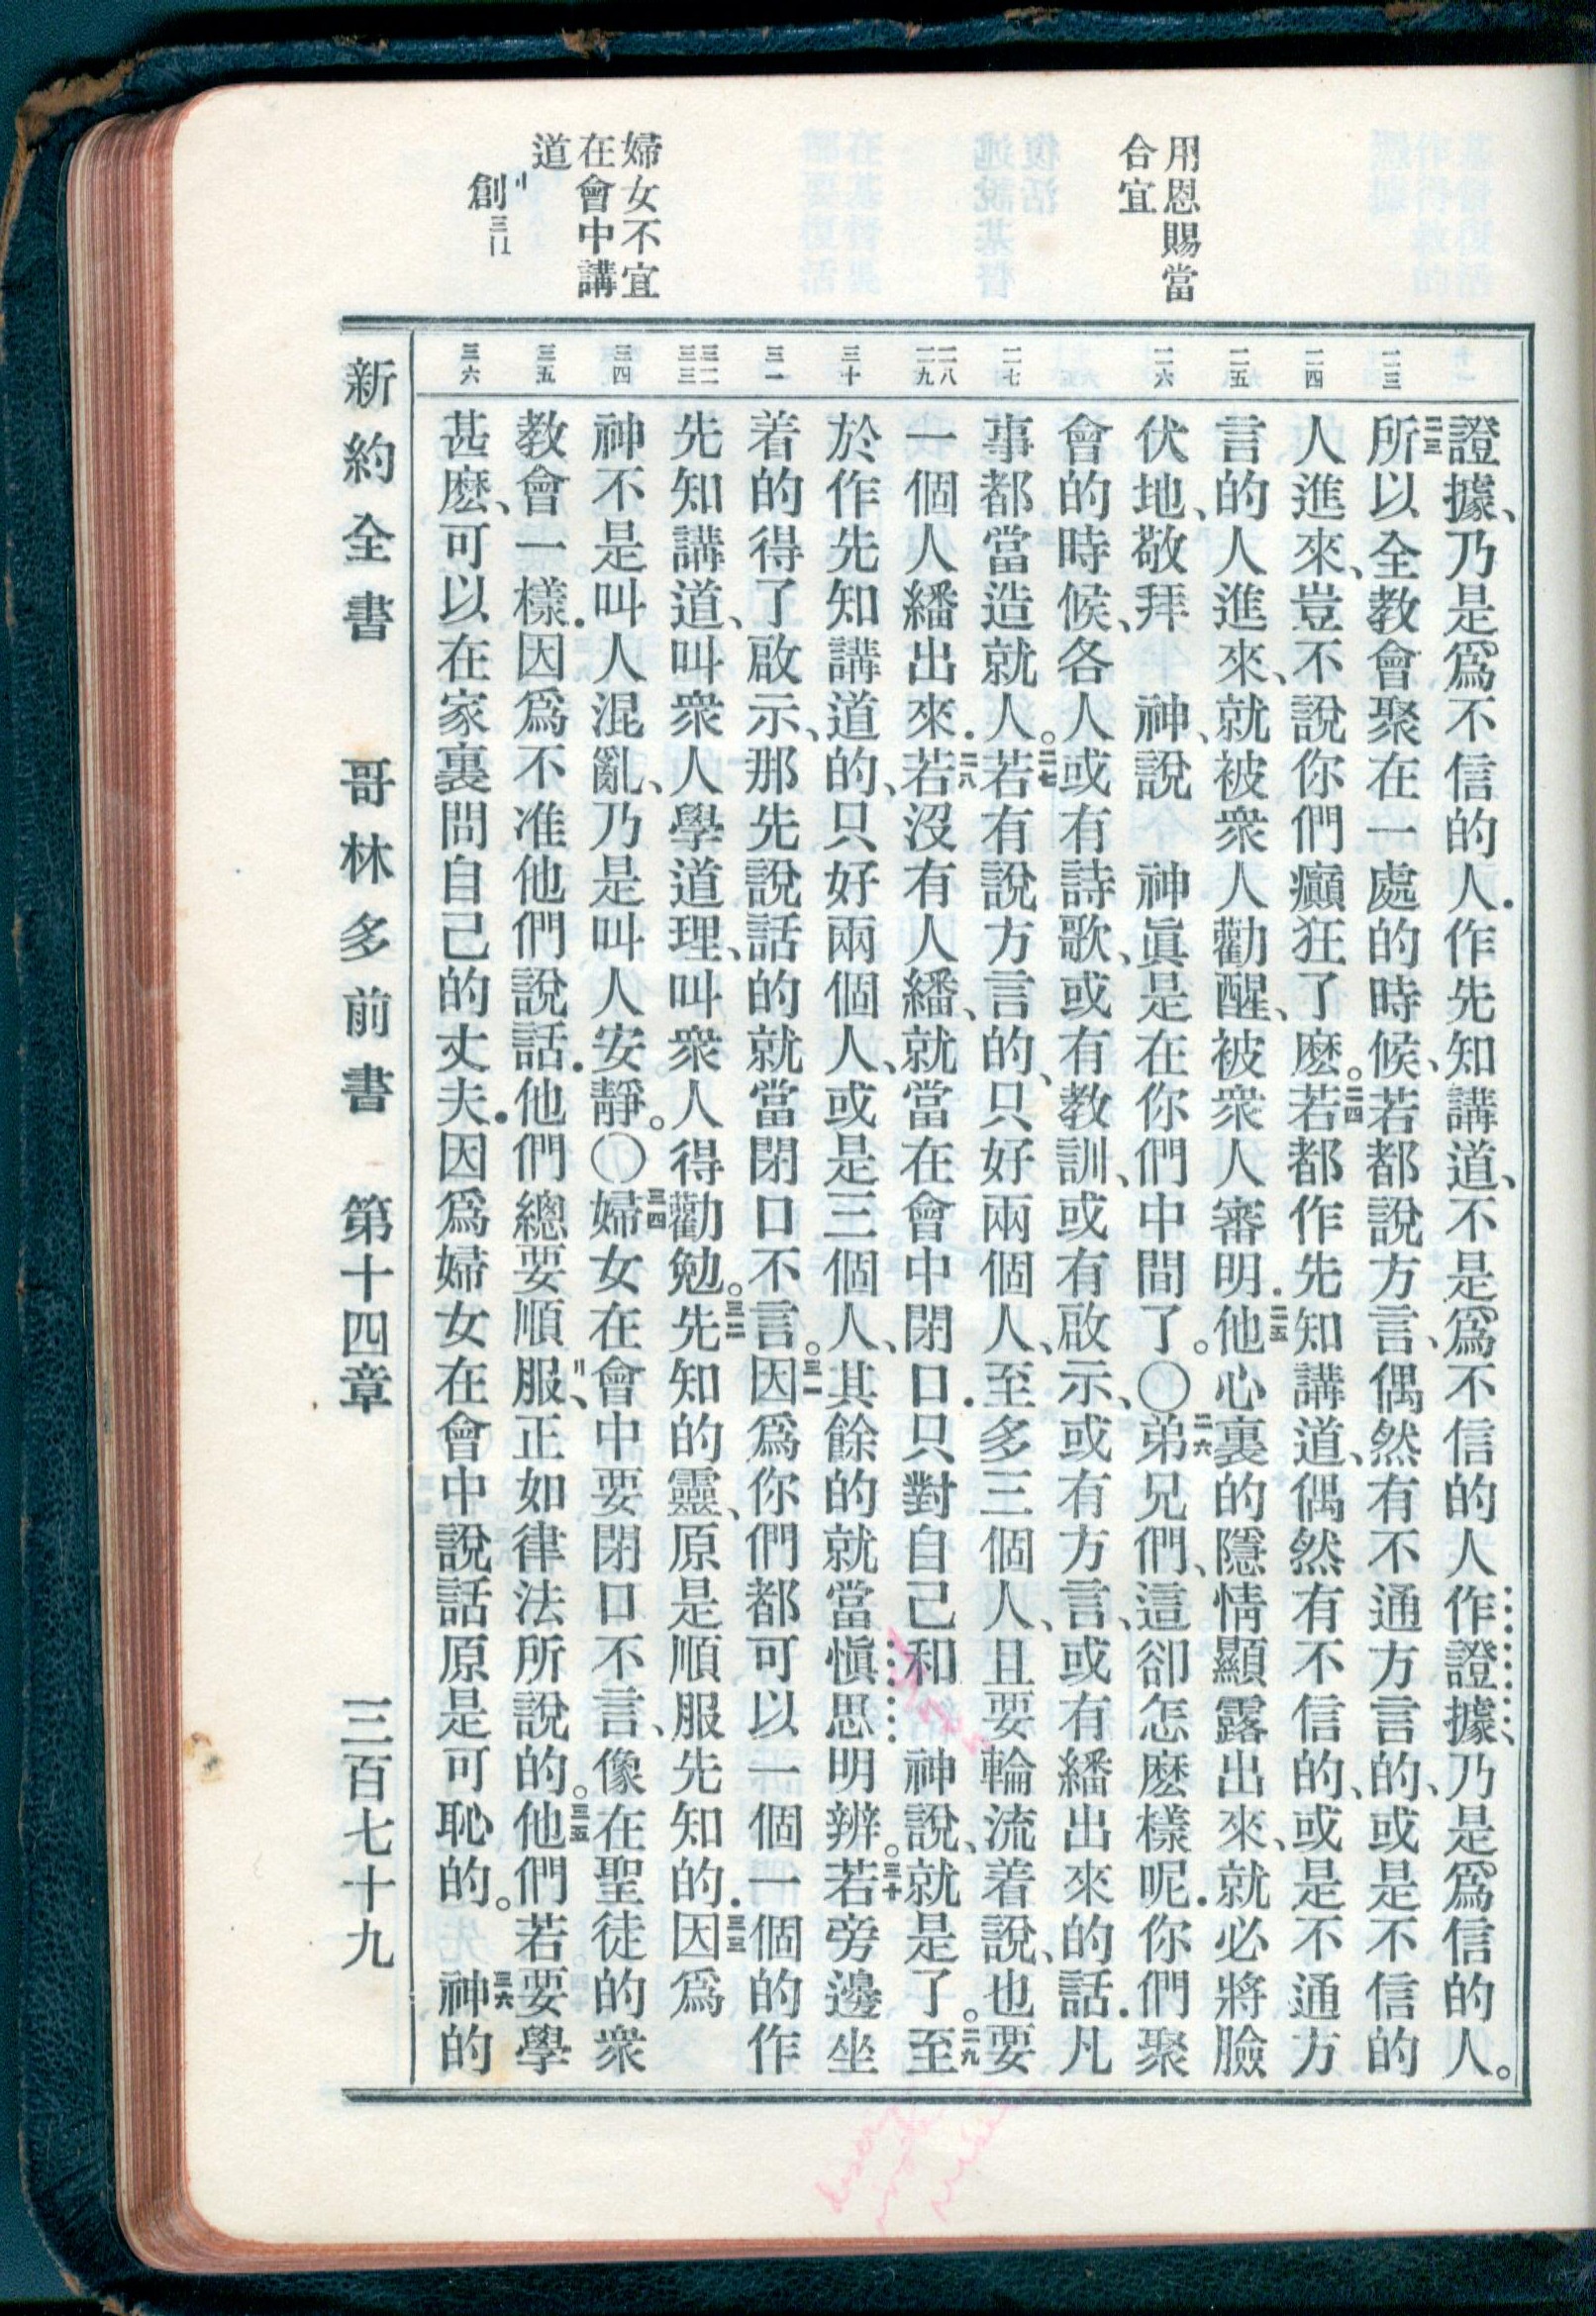 用恩賜當
合宜
婦女不宜
在會中講
道
〢創三 〡〦
二三
二四
二五
二六
二七
二八
二九
三十
三一
三二
三三
三四
三五
三六
證據、乃是爲不信的人．作先知講道、不是爲不信的人作證據、乃是爲信的人。
二三所以全教會聚在一處的時候、若都說方言、偶然有不通方言的、或是不信的
人進來、豈不說你們癲狂了麽。二四若都作先知講道、偶然有不信的、或是不通方
言的人進來、就被衆人勸醒、被衆人審明．二五他心裏的隱情顯露出來、就必將臉
伏地、敬拜　神、說　神眞是在你們中間了。〇二六弟兄們、這卻怎麽樣呢．你們聚
會的時候、各人或有詩歌、或有教訓、或有啟示、或有方言、或有繙出來的話．凡
事都當造就人。二七若有說方言的、只好兩個人、至多三個人、且要輪流着說、也要
一個人繙出來．二八若沒有人繙、就當在會中閉口．只對自己和　神說、就是了。二九至
於作先知講道的、只好兩個人、或是三個人、其餘的就當愼思明辨。三十若旁邊坐
着的得了啟示、那先說話的就當閉口不言。三一因爲你們都可以一個一個的作
先知講道、叫衆人學道理、叫衆人得勸勉。三二先知的靈、原是順服先知的．三三因爲
神不是叫人混亂、乃是叫人安靜。〇三四婦女在會中要閉口不言、像在聖徒的衆
教會一樣．因爲不准他們說話．他們總要順服〢、正如律法所說的。三五他們若要學
甚麽、可以在家裏問自己的丈夫．因爲婦女在會中說話原是可恥的。三六神的
新約全書　哥林多前書　第十四章　三百七十九